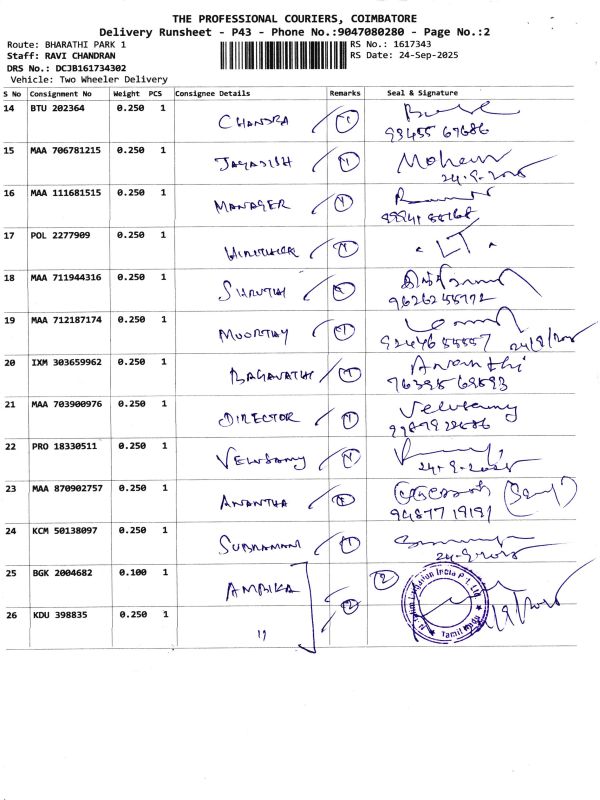 THE PROFESSIONAL COURIERS, COIMBATORE
Delivery Runsheet - P43 - Phone No.:9047080280 - Page No.:2
Route: BHARATHI PARK 1 RS No.: 1617343
Staff: RAVI CHANDRAN RS Date: 24-Sep-2025
DRS No.: DCJB161734302
Vehicle: Two Wheeler Delivery
S No Consignment No Weight PCS Consignee Details Remarks Seal & Signature
14 BTU 202364 0.250 1 CHANDRA 1
93455 67686
15 MAA 706781215 0.250 1 JAGADISH 1 Mohan
24-9-2025
16 MAA 111681515 0.250 1 MANAGER 1
17 POL 2277909 0.250 1 1
18 MAA 711944316 0.250 1 SHRUTHI 1
96262 55772
19 MAA 712187174 0.250 1 MOORTHY 1
24/9/2025
20 IXM 303659962 0.250 1 BAGAVATHI 1 Ananthi
76395 69593
21 MAA 703900976 0.250 1 DIRECTOR 1 Velusamy
22 PRO 18330511 0.250 1 VELUSAMY 1
24-9-2025
23 MAA 870902757 0.250 1 ANANTHA 1
94877 19191
24 KCM 50138097 0.250 1 SUBRAMANI 1
24-9-2025
25 BGK 2004682 0.100 1 AMBIKA 2
India Pvt. Ltd.
Tamil Nadu
26 KDU 398835 0.250 1 " 2